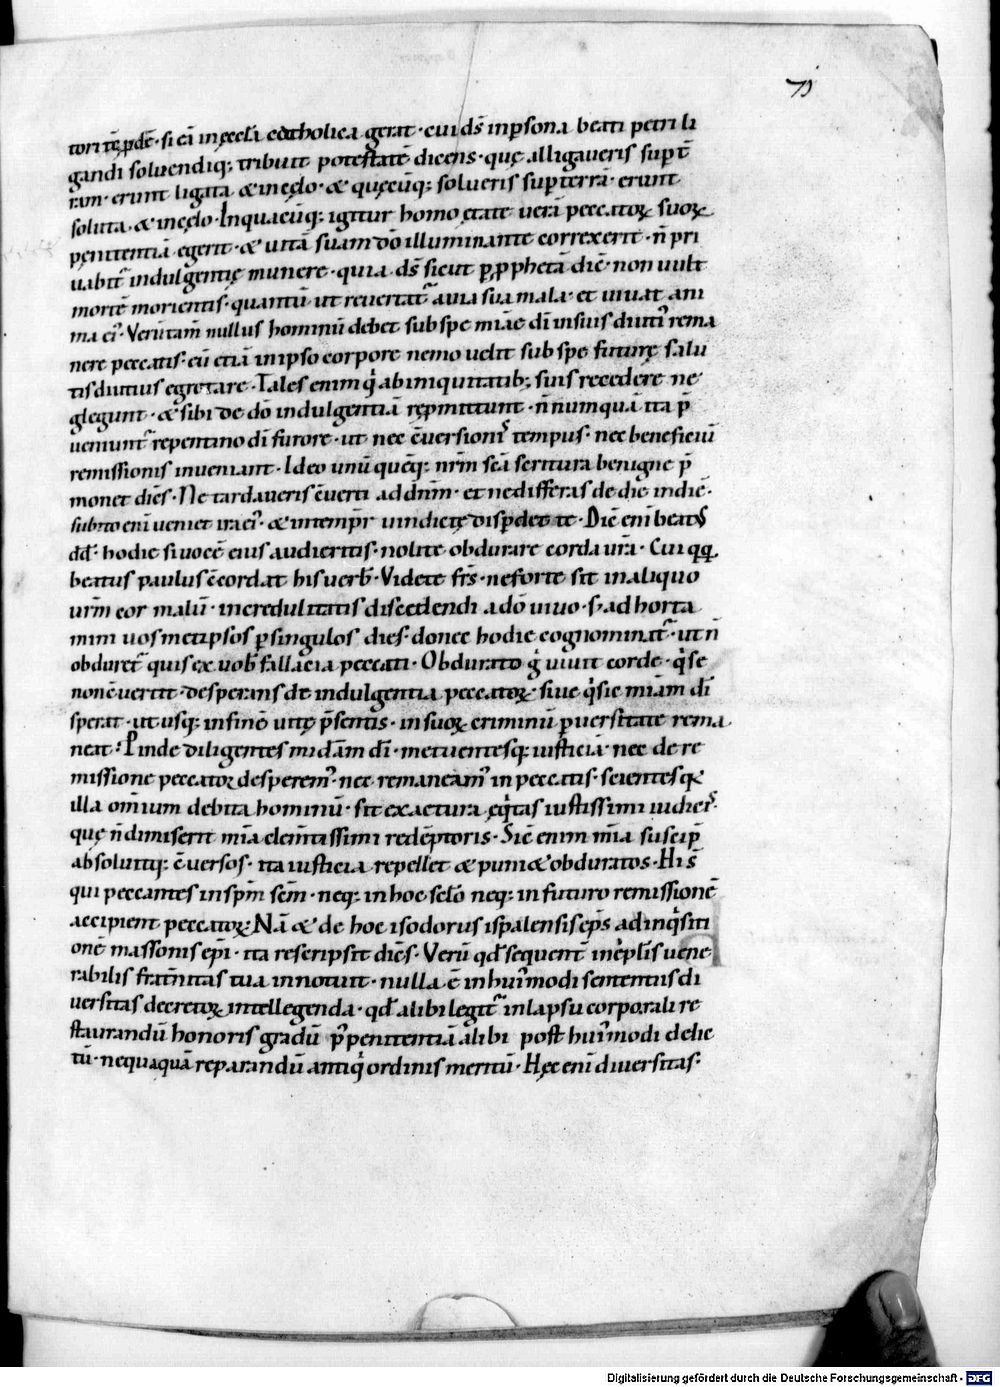 71
tori tēpdē · si eā in ęccl'ı catholica gerat · cui ds̄ in psona beati petri li
gandi soluendiq; tribuit potestatē dicens · quę alligaueris sup t̄
ram · erunt ligata & in cęlo · & quęcūq; solueris sup terrā · erunt
soluta · & in cęlo · In quacūq; igitur homo ętate uerā peccatoꝝ suoꝝ
penitentiā egerit · & uitā suam dō illuminante correxerit · n̄ pri
uabit̄ indulgentię munere · quia ds̄ sicut p pphetā dic̄ · non uult
mortē morientis · quantū ut reuertat̄ a uia sua mala · et uiuat ani
ma ei' · Verūtam̄ nullus hominū debet sub spe mīae dī in suis diuti' rema
nere peccatis · cū etiā in ipso corpore nemo uelit sub spe futurę salu
tis diutius egrotare · Tales enim q̇ ab iniquitatib; suis recedere ne
glegunt · & sibi de dō indulgentiā repmittunt · n̄ numquā ita p̄
ueniunt̄ repentino dī furore · ut nec c̄uersionis tempus · nec beneficiū
remissionis inueniant · Ideo unū quēq; nr̄m sc̄a scritura benigne p̄
monet dic̄s · Ne tardaueris c̄uerti ad dnm̄ · et ne differas de die in diē ·
subito eni ueniet ira ei' · & in temp̄r uindictę disperdet te · Dic̄ eni beat'
dd̄ · hodie si uocē eius audieritis · nolite obdurare corda ur̄a · Cui qq̨
beatus paulus c̄cordat his uerb̄ · Videte frs̄ · ne forte sit in aliquo
urm̄ cor malū · incredulitatis discedendi a dō uiuo · s; adhorta
mini uosmetipsos p singulos dies · donec hodie cognominat̄ · ut n̄
obduret̄ quis ex uob̄ fallacia peccati · Obdurato ġ uiuit corde · q̇ se
non c̄uertit · desperans de indulgentia peccatoꝝ · siue q̇ sic mīam dī
sperat · ut usq; in finē uitę p̄sentis · in suoꝝ criminū puersitate rema
neat · Pinde diligentes mīdam dī · metuentesq; iusticiā · nec de re
missione peccatoꝝ desperem' · nec remaneam' in peccatis · scientes q
illa omīum debita hominū · sit exactura ęq̇tas iustissimi iudici' ·
quę n̄ dimiserit mīa clem̄tissimi redēptoris · Sic̄ enim mīa suscip̄
absoluitq; c̄uersos · ita iusticia repellet & puni& obduratos · Hi s̄
qui peccantes in spm̄ scm̄ · neq; in hoc sclō neq; in futuro remissionē
accipient peccatoꝝ · Nā & de hoc isodorus ispalensis ep̄s ad inq̇siti
onē massonis ep̄i · ita rescripsit dic̄s · Verū qd̄ sequent̄ in ęplīs uene
rabilis frat̄nitas tua innotuit · nulla ē in hui'modi sententiis di
uersitas decretoꝝ intellegenda · qd̄ alibi legit̄ in lapsu corporali re
staurandū honoris gradū p̄ penitentiā alibi post hui'modi delic
tū · nequaquā reparandū antiq̇ ordinis meritū · Hęc eni diuersitas ·
Digitalisierung gefördert durch die Deutsche Forschungsgemeinschaft - DFG